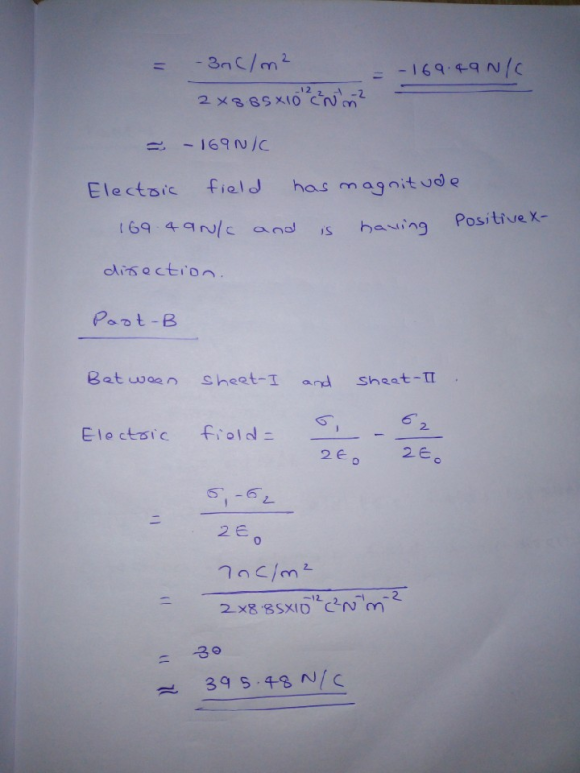 = -3nC/m² / 2×8.85×10⁻¹²C²N⁻¹m⁻² = -169.49N/C
≈ -169N/C
Electric field has magnitude
169.49N/C and is having Positive X-
direction.
Part-B
Between sheet-I and sheet-II.
Electric field = σ₁/2ϵ₀ - σ₂/2ϵ₀
= σ₁-σ₂ / 2ϵ₀
= 7nC/m² / 2×8.85×10⁻¹²C²N⁻¹m⁻²
= 30
≈ 395.48 N/C